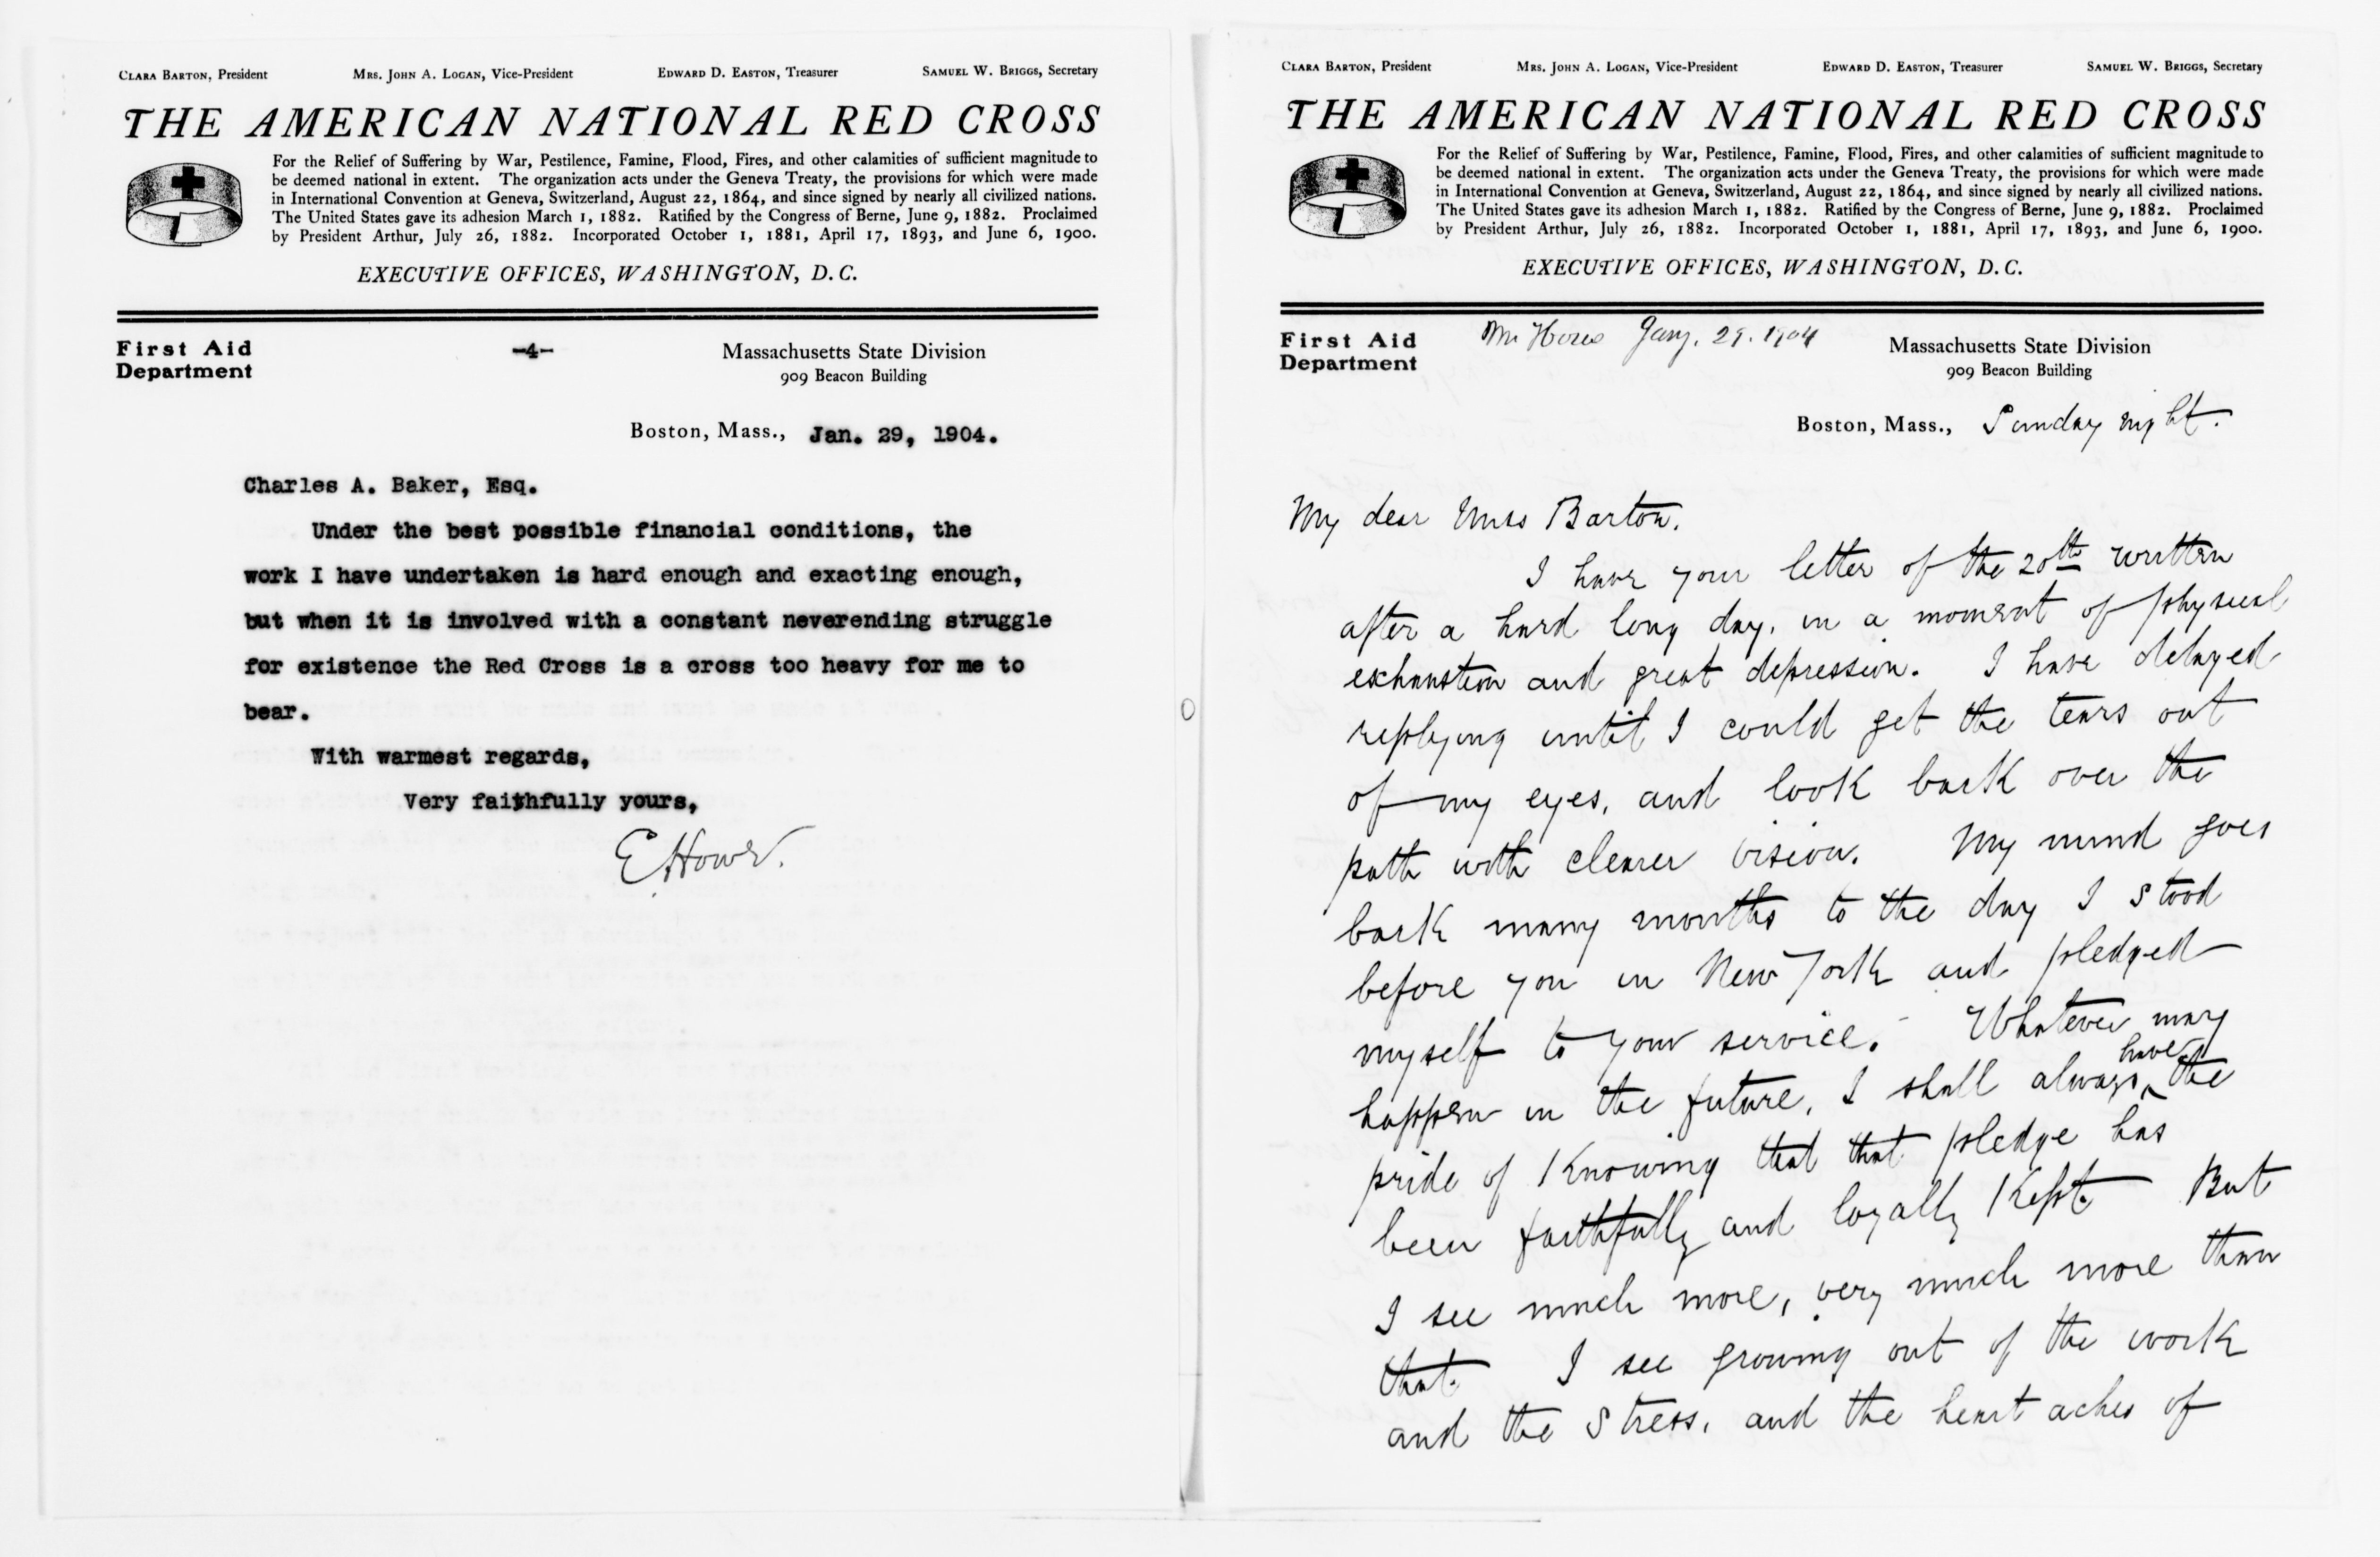 CLARA BARTON, President MRS. JOHN A. LOGAN, Vice-President EDWARD D. EASTON, Treasurer SAMUEL W. BRIGGS, Secretary
THE AMERICAN NATIONAL RED CROSS
For the Relief of Suffering by War, Pestilence, Famine, Flood, Fires, and other calamities of sufficient magnitude to
be deemed national in extent. The organization acts under the Geneva Treaty, the provisions for which were made
in International Convention at Geneva, Switzerland, August 22, 1864, and since signed by nearly all civilized nations.
The United States gave its adhesion March 1, 1882. Ratified by the Congress of Berne, June 9, 1882. Proclaimed
by President Arthur, July 26, 1882. Incorporated October 1, 1881, April 17, 1893, and June 6, 1900.
EXECUTIVE OFFICES, WASHINGTON, D. C.
First Aid
Department
-4-
Massachusetts State Division
909 Beacon Building
Boston, Mass., Jan. 29, 1904.
Charles A. Baker, Esq.
Under the best possible financial conditions, the
work I have undertaken is hard enough and exacting enough,
but when it is involved with a constant neverending struggle
for existence the Red Cross is a cross too heavy for me to
bear.
With warmest regards,
Very faithfully yours,
E Howe.
CLARA BARTON, President MRS. JOHN A. LOGAN, Vice-President EDWARD D. EASTON, Treasurer SAMUEL W. BRIGGS, Secretary
THE AMERICAN NATIONAL RED CROSS
For the Relief of Suffering by War, Pestilence, Famine, Flood, Fires, and other calamities of sufficient magnitude to
be deemed national in extent. The organization acts under the Geneva Treaty, the provisions for which were made
in International Convention at Geneva, Switzerland, August 22, 1864, and since signed by nearly all civilized nations.
The United States gave its adhesion March 1, 1882. Ratified by the Congress of Berne, June 9, 1882. Proclaimed
by President Arthur, July 26, 1882. Incorporated October 1, 1881, April 17, 1893, and June 6, 1900.
EXECUTIVE OFFICES, WASHINGTON, D. C.
First Aid
Department
Mr Howe Jany. 29. 1904
Massachusetts State Division
909 Beacon Building
Boston, Mass., Sunday night.
My dear Miss Barton.
I have your letter of the 20th written
after a hard long day, in a moment of physical
exhaustion and great depression. I have delayed
replying until I could get the tears out
of my eyes, and look back over the
path with clearer vision. My mind goes
back many months to the day I stood
before you in New York and pledged
myself to your service. Whatever may
happen in the future, I shall always have the
pride of knowing that that pledge has
been faithfully and loyally kept. But
I see much more, very much more than
that. I see growing out of the work
and the stress, and the heart aches of